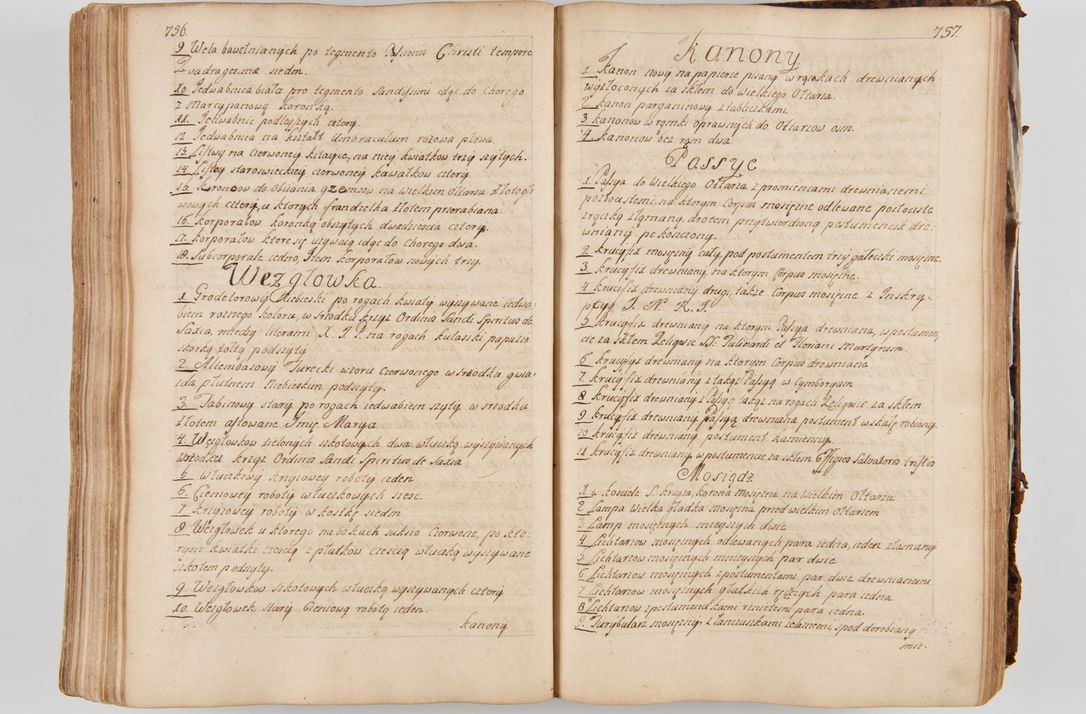 736.
9 Wela bawełnianych po tegmento Passionis Christi tempore
Quadragesimæ siedm.
10. Jedwabnica biała pro tegmento Sandissimi idąc do Chorego
z Marcypanową koronką.
11. Jedwabnic podłyzszych cztery.
12 Jedwabnica na kształt Umbraculum rozowa płowa.
13. Listwy na czerwoney kitayce, na niey kwiatkow trzy szytych.
14 Listwy staroswieckiey czerwoney kawałkow cztery
15. Kroncow do obiiania gzemsow na wielkim Ołtarzu złotogło
wowych cztery, u ktorych frandzelka złotem przerabiana.
16. Korporałow koronką obszytych dwadziescia cztery.
17. Korporałow ktore się używaią idąc do Chorego dwa.
18. Subcorporale iedno, Item Korporałow nowych trzy.
Wezgłowka.
1 Grodetorowy Niebieski po rogach kwiaty wyszywane iedwa-
biem roznego koloru, w srodku krzyz Ordinis Sandi Spiritus de
Saxia, między literami X. J. P. na rogach kutasiki papuzie
skorką żołtą podszyty
2. Attembasowy Turecki wzoru czerwonego w srodku gwia-
zda płutnem Niebieskim podszyty.
3. Tabinowy stary po rogach iedwabiem szyty w srodku
złotem aftowane Imie Marya
4. Węzgłowkow zielonych szkotowych dwa włuczką wyszywanych
w srodku krzyz Ordinis Sandi Spiritus de Saxia
5 Włuczkowy krzyzowey roboty ieden
6 Cieniowey roboty włuczkowych szesc.
7 Krzyzowey roboty w kostkę siedm
8 Wezgłowek u ktorego na bokach sukno Czerwone, po kto-
rym kwiatki częscią z płatkow częscią włuczką wyszywane
szkołem podszyty.
9 Wezgłowkow szkotowych włuczką wyszywanych cztery
10. Wezgłowek stary Cieniową robotą ieden.
kanony
757.
Kanony
1. Kanon nowy na papierze pisany w ramkach drewnianych
wyzłoconych za szkłem do wielkiego Ołtarza.
2 Kanon parganinowy z tabliczkami.
3 Kanonow w ramki oprawnych do Ołtarzow osm.
4 Kanonow bez ram dwa.
Passye
1. Passya do Wielkiego Ołtarza z promieniami drewnianemi
pozłoustemi, na ktorym Corpus mosięzne odlewane pozłociste
z rączką złamaną, drotem przytwierdzoną postumencik dre-
wniany pokonczony.
2 Krucyfix mosięzny cały, pod postumentem trzy gałeczki mosięzne.
3 Krucyfix drewniany, na ktorym Corpus mosięzne.
4 Krucyfix drewniany drugi, także Corpus mosięzne z Inskry-
pcyą J. N. R. J.
5 Krucyfix drewniany na ktorym Passya drewniana, w postumen-
cie za szkłem Reliquie SS. Fulinardi et Floriani Martyrum.
6 Krucyfix drewniany na ktorym Corpus drewniane
7. Krucyfix drewniany z takąz Passyą w Cymboryum
8 Krucyfix drewniany z Passyą takąz na rogach Reliquie za szkłem
9 Krucyfix drewniany Passya drewniana postument w skałę robiony.
10 Krucyfix drewniany postument kamienny.
11 Krucyfix drewniany w postumencie za szkłem Effigies Salvatoris tristis
Mosiądz
1 w kosciele S. Krzyza, korona mosięzna na Wielkim Ołtarzu
2 Lampa wielka gładka mosięzna przed wielkim Ołtarzem
3 Lamp mosięznych mnieyszych dwie
4 Lichtarzow mosięznych odlewanych para iedna, ieden złamany
5 Lichtarzow mosięznych mnieyszych par dwie
6 Lichtarzow mosięznych z postumentami par dwie drewnianemi
7 Lichtarzow mosięznych gładkich ręcznych para iedna
8 Lichtarzow z postumendkami rzniętemi para iedna
9. Turybularz mosięzny z łancuszkami zelaznemi, spod dorobiony
mie-